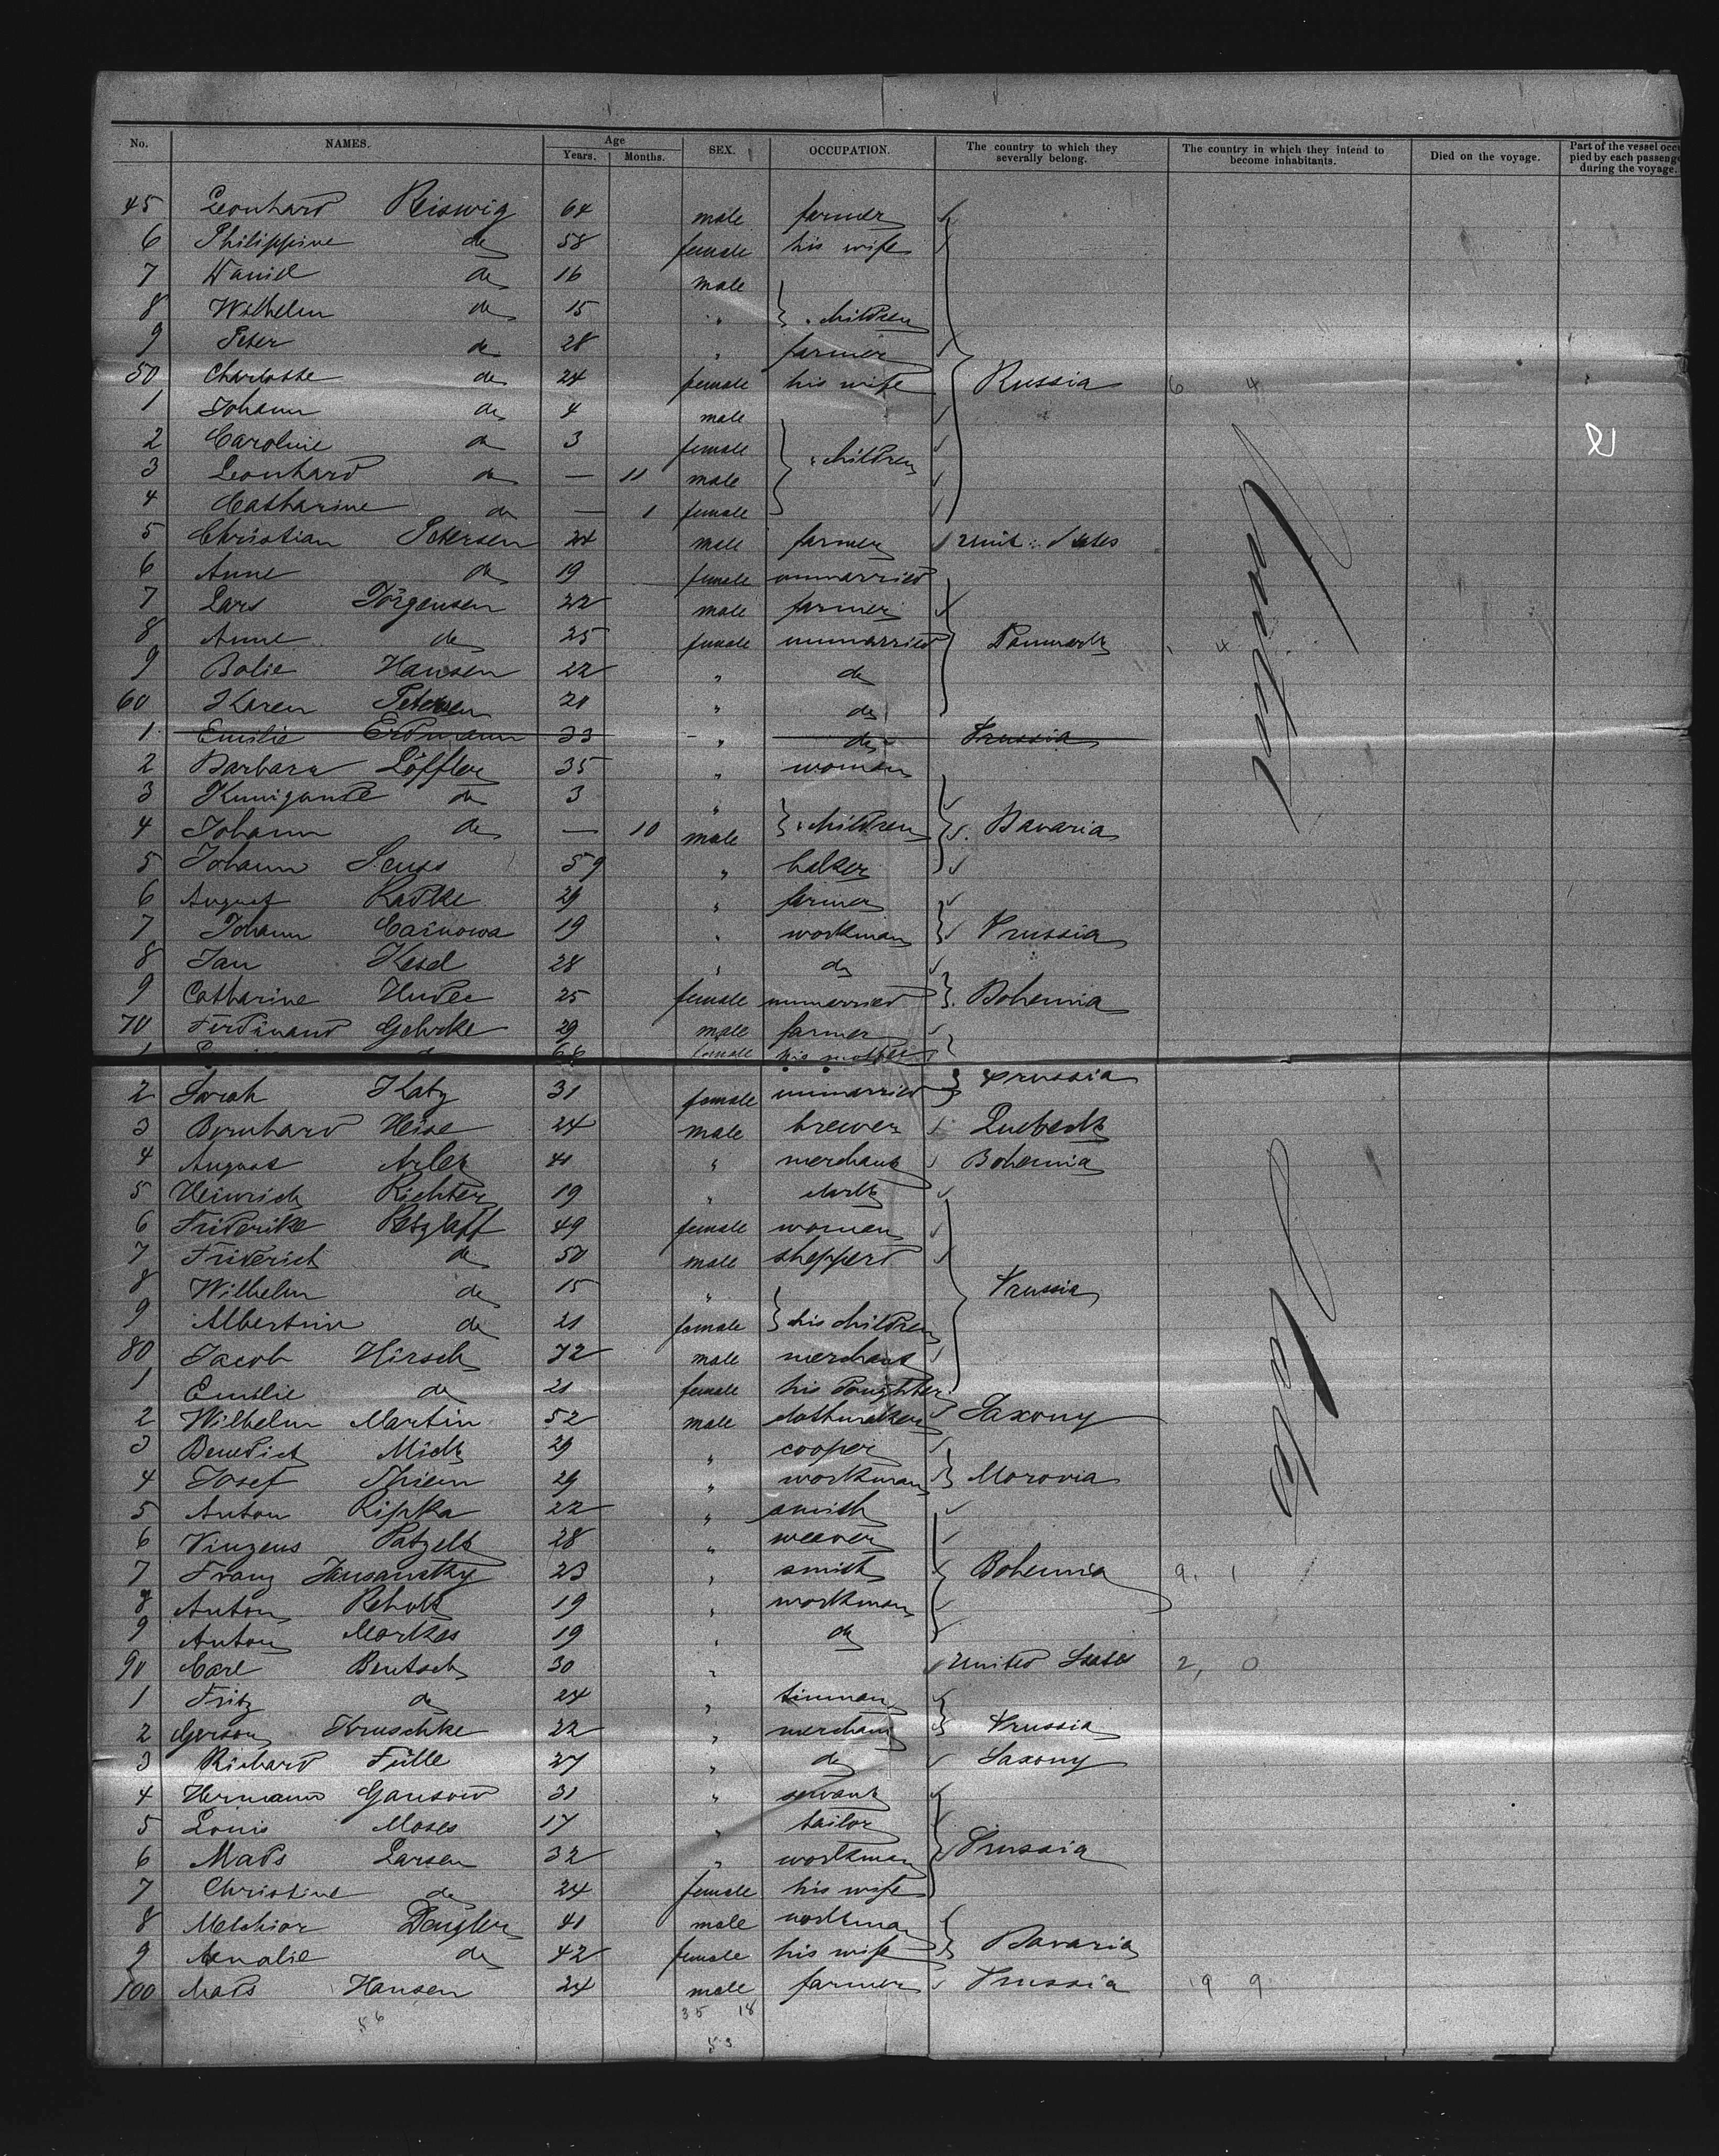 No. NAMES. Age Years. Months. SEX. OCCUPATION. The country to which they severally belong. The country in which they intend to become inhabitants. Died on the voyage. Part of the vessel occu pied by each passeng during the voyage.
45 Leonhard Reiswig 64 male farmer
6 Philippine do 58 female his wife
7 Daniel do 16 male
8 Wilhelm do 15 " children
9 Peter do 28 " farmer
50 Charlotte do 24 female his wife Russia 6 4
1 Johann do 4 male
2 Caroline do 3 female children
3 Leonhard do — 11 male
4 Catharine do — 1 female
5 Christian Petersen 24 male farmer Unit: States
6 Anne do 19 female unmarried
7 Lars Jörgensen 22 male farmer
8 Anne do 25 female unmarried Danmark 4
9 Bolie Hansen 22 " do
60 Karen Petersen 20 " do
1 Emilie Erdmann 33 " do Prussia
2 Barbara Löffler 35 " woman
3 Kunigunde do 3 "
4 Johann do — 10 male children Bavaria
5 Johann 59 "
6 August Radtke 29 " farmer
7 Johann 19 " workman Prussia
8 Jan Kesel 28 " do
9 Catharine Hudec 25 female unmarried Bohemia
70 Ferdinand Gehrke 29 male farmer
1 do 66 female his mother
2 Sarah Katz 31 female unmarried Prussia
3 Bernhard Heise 24 male brewer Luebeck
4 August Arlez 41 " merchant Bohemia
5 Heinrich Richter 19 " clerk
6 Friderike Retzlaff 49 female woman
7 Friderich do 50 male shepperd
8 Wilhelm do 15 " Prussia
9 Albertine do 21 female his children
80 Jacob Hirsch 72 male merchant
1 Emilie do 21 female his Doughter
2 Wilhelm Martin 52 male clothmaker Saxony
3 Benedict Mick 29 " cooper
4 Josef Thiem 29 " workman Morovia
5 Anton Ripka 22 " smith
6 Vinzens Patzelt 28 " weaver
7 Franz 23 " smith Bohemia 9. 1
8 Anton 19 " workman
9 Anton 19 " do
90 Carl Bentsch 30 " United States 2, 0
1 Fritz do 24 " tinman
2 Gerson Kruschke 22 " merchant Prussia
3 Richard Fülle 27 " do Saxony
4 Hermann Gansow 31 " servant
5 Louis Moses 17 " tailor
6 Mads Larsen 32 " workman Prussia
7 Christine do 24 female his wife
8 Melchior Dengler 41 male workman
9 Amalie do 42 female his wife Bavaria
100 Mads Hansen 24 male farmer Prussia 19 9
56 35 18
53